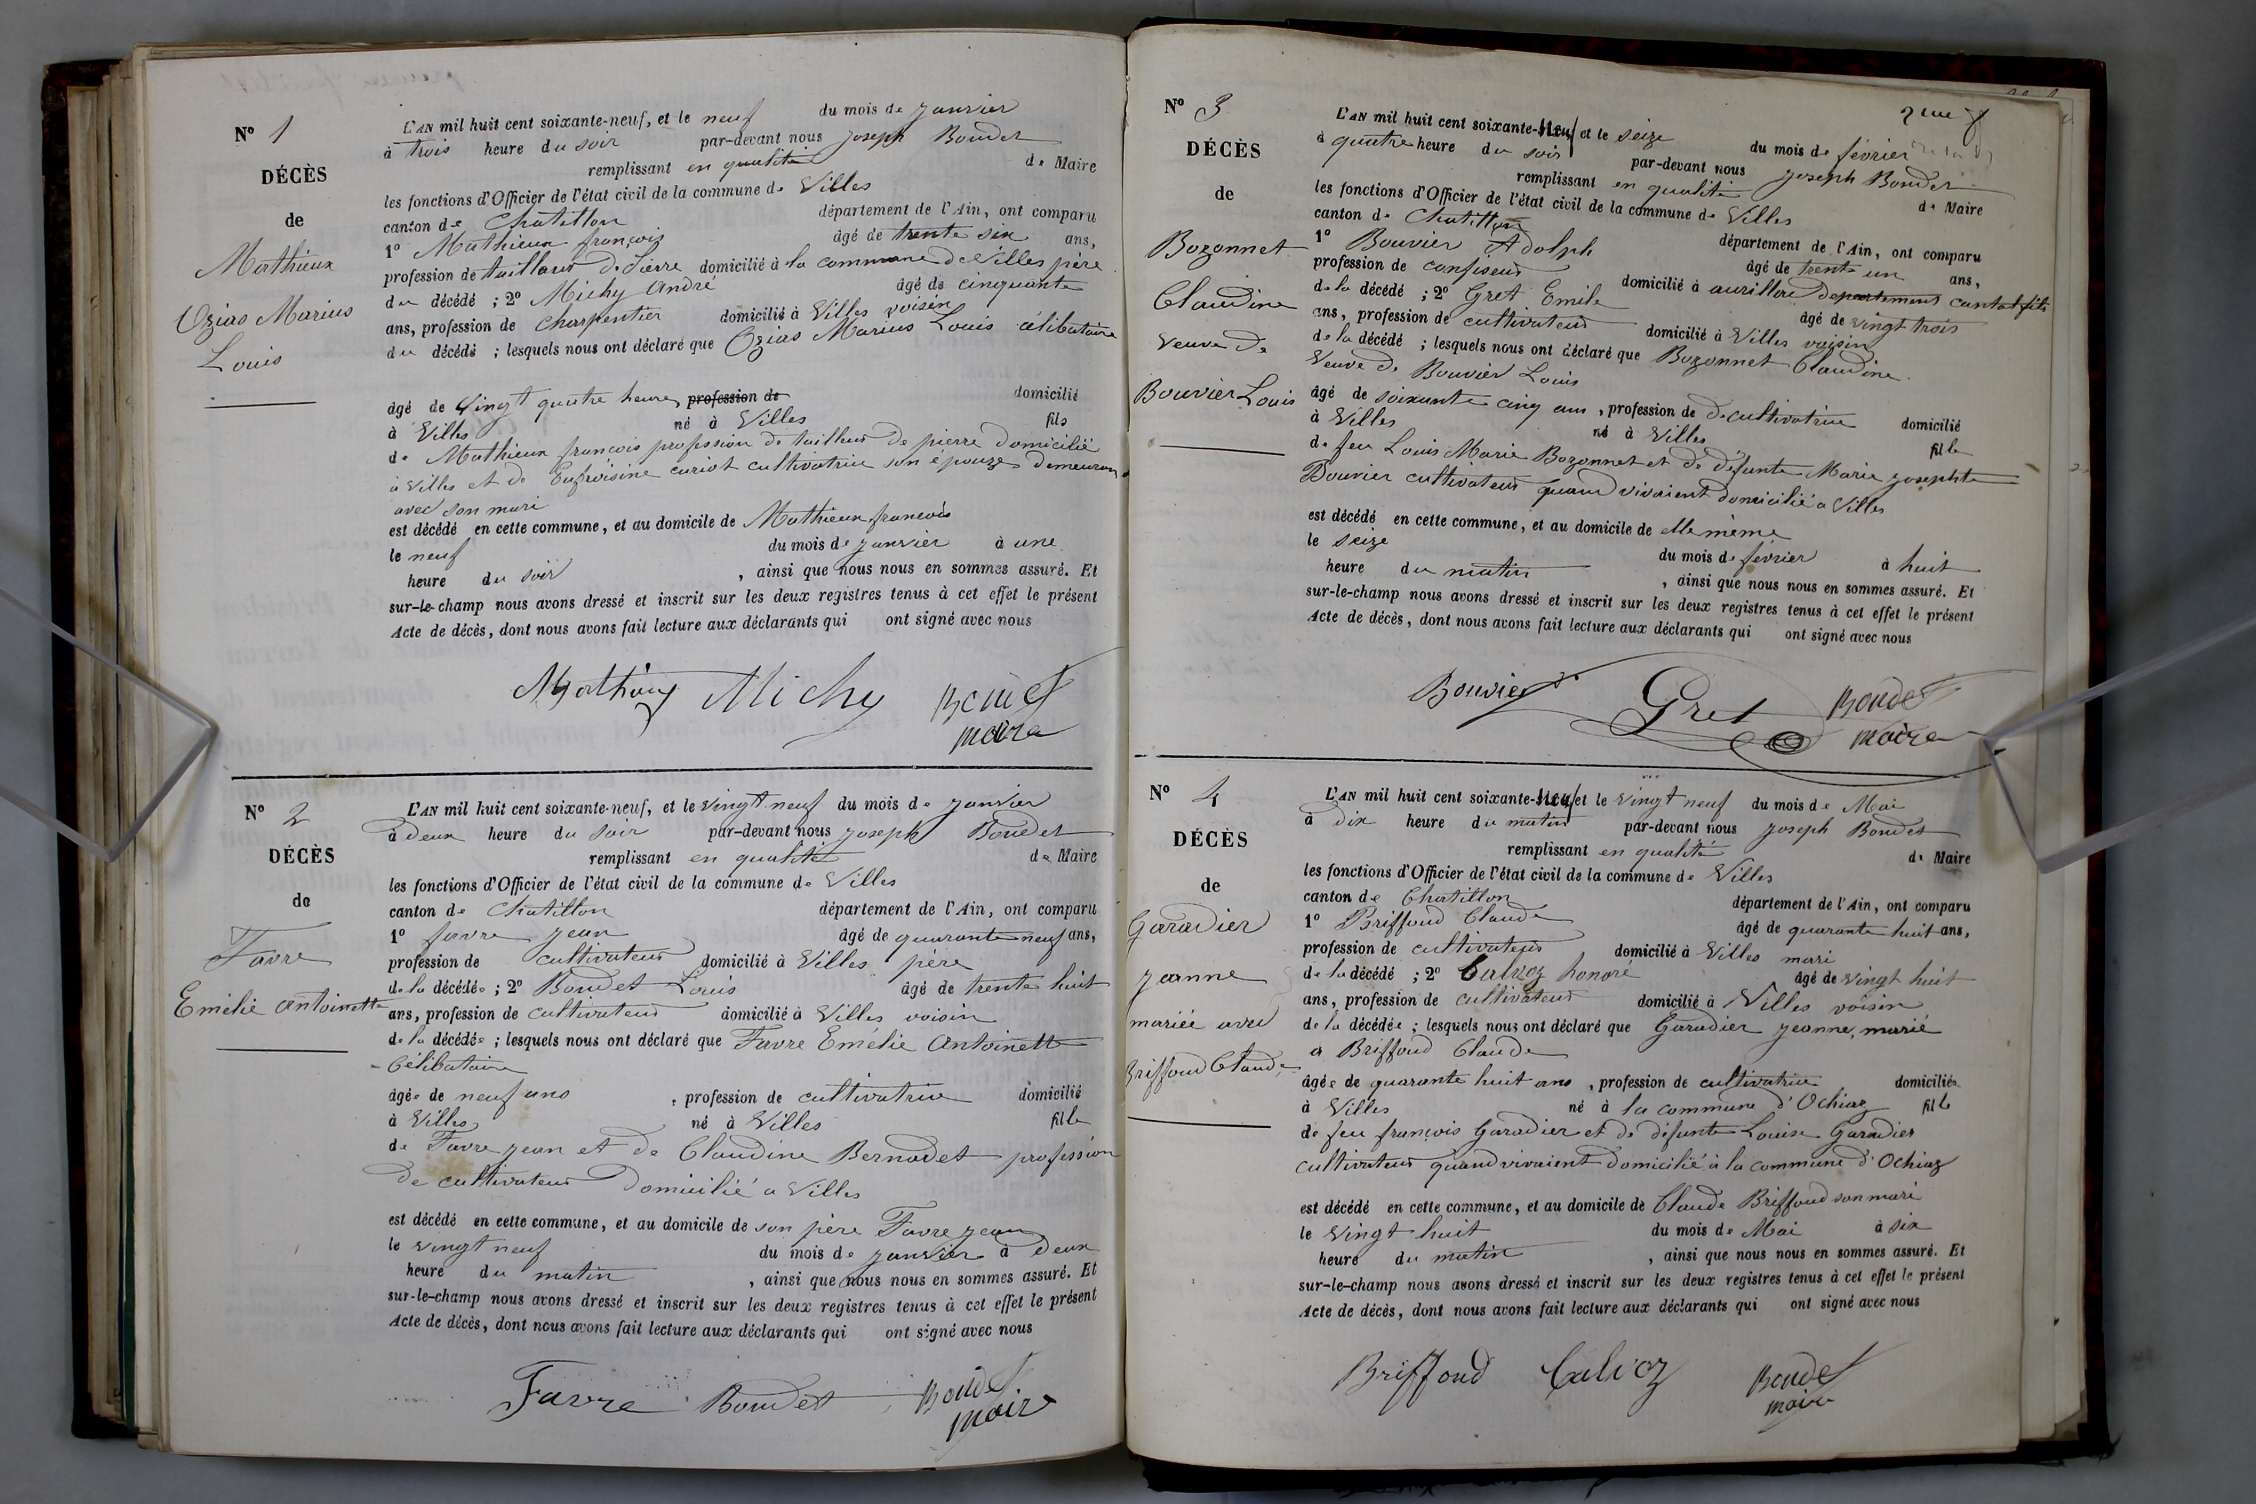 N° 1
DÉCÈS
de
Mathieux
Ozias Marius
Louis
L'AN mil huit cent soixante-neuf, et le neuf du mois de janvier
à trois heure du soir par-devant nous joseph Boudet
remplissant en qualité de Maire
les fonctions d'Officier de l'état civil de la commune de Villes
canton de Chatillon département de l'Ain, ont comparu
1° Mathieux françois âgé de trente six ans,
profession de tailleur de Pierre domicilié à la commune de Villes père
du décédé ; 2° Michy André âgé de cinquante
ans, profession de charpentier domicilié à Villes voisin
du décédé ; lesquels nous ont déclaré que Ozias Marius Louis célibataire
âgé de Vingt quatre heure, profession de domicilié
à Villes né à Villes fils
de Mathieux françois profession de tailleur de pierre domicilié
à Villes et de Eufroisine curiot cultivatrice son épouze demeurant
avec son mari
est décédé en cette commune, et au domicile de Mathieux françois
le neuf du mois de janvier à une
heure du soir , ainsi que nous nous en sommes assuré. Et
sur-le-champ nous avons dressé et inscrit sur les deux registres tenus à cet effet le présent
Acte de décès, dont nous avons fait lecture aux déclarants qui ont signé avec nous
Mathieux Michy Boudet
maire
N° 2
DÉCÈS
de
Favre
Emélie Antoinette
L'AN mil huit cent soixante-neuf, et le vingt neuf du mois de janvier
à deux heure du soir par-devant nous joseph Boudet
remplissant en qualité de Maire
les fonctions d'Officier de l'état civil de la commune de Villes
canton de Chatillon département de l'Ain, ont comparu
1° favre jean âgé de quarante neuf ans,
profession de cultivateur domicilié à Villes père
de la décédée ; 2° Boudet Louis âgé de trente huit
ans, profession de cultivateur domicilié à Villes voisin
de la décédée ; lesquels nous ont déclaré que Favre Emélie Antoinette
célibataire
âgée de neuf ans , profession de cultivatrice domicilié
à Villes né à Villes fille
de Favre jean et de Claudine Bernadet profession
de cultivateur domicilié a Villes
est décédé en cette commune, et au domicile de son père Favre jean
le vingt neuf du mois de janvier à deux
heure du matin , ainsi que nous nous en sommes assuré. Et
sur-le-champ nous avons dressé et inscrit sur les deux registres tenus à cet effet le présent
Acte de décès, dont nous avons fait lecture aux déclarants qui ont signé avec nous
Favre Boudet Boudet
maire
2me f
N° 3
DÉCÈS
de
Bozonnet
Claudine
veuve de
Bouvier Louis
L'AN mil huit cent soixante-neuf et le seize du mois de février
à quatre heure du soir par-devant nous joseph Boudet
remplissant en qualité de Maire
les fonctions d'Officier de l'état civil de la commune de Villes
canton de Chatillon département de l'Ain, ont comparu
1° Bouvier Adolph âgé de trente un ans,
profession de confiseur domicilié à aurillac departement cantal fils
de la décédé ; 2° Gret Emile âgé de vingt trois
ans, profession de cultivateur domicilié à Villes voisin
de la décédé ; lesquels nous ont déclaré que Bozonnet Claudine
Veuve de Bouvier Louis
âgé de soixante cinq ans , profession de de cultivatrice domicilié
à Villes né à Villes fille
de feu Louis Marie Bozonnet et de défunte Marie josephte
Bouvier cultivateur quand vivaient domicilié a Villes
est décédé en cette commune, et au domicile de elle même
le seize du mois de février à huit
heure du matin , ainsi que nous nous en sommes assuré. Et
sur-le-champ nous avons dressé et inscrit sur les deux registres tenus à cet effet le présent
Acte de décès, dont nous avons fait lecture aux déclarants qui ont signé avec nous
Bouvier Gret Boudet
maire
N° 4
DÉCÈS
de
Garadier
jeanne
mariée avec
Briffoud Claude
L'AN mil huit cent soixante-neuf et le vingt neuf du mois de Mai
à dix heure du matin par-devant nous joseph Boudet
remplissant en qualité de Maire
les fonctions d'Officier de l'état civil de la commune de Villes
canton de Chatillon département de l'Ain, ont comparu
1° Briffoud Claude âgé de quarante huit ans,
profession de cultivateur domicilié à Villes mari
de la décédé ; 2° Calvoz honoré âgé de vingt huit
ans, profession de cultivateur domicilié à Villes voisin
de la décédée ; lesquels nous ont déclaré que Garadier jeanne, marié
a Briffoud Claude
âgée de quarante huit ans , profession de cultivatrice domiciliée
à Villes né à la commune d'Ochiaz fille
de feu françois Garadier et de défunte Louise Garadier
cultivateur quand vivaient domicilié à la commune d'Ochiaz
est décédé en cette commune, et au domicile de Claude Briffoud son mari
le vingt huit du mois de Mai à six
heure du matin , ainsi que nous nous en sommes assuré. Et
sur-le-champ nous avons dressé et inscrit sur les deux registres tenus à cet effet le présent
Acte de décès, dont nous avons fait lecture aux déclarants qui ont signé avec nous
Briffoud Calvoz Boudet
maire